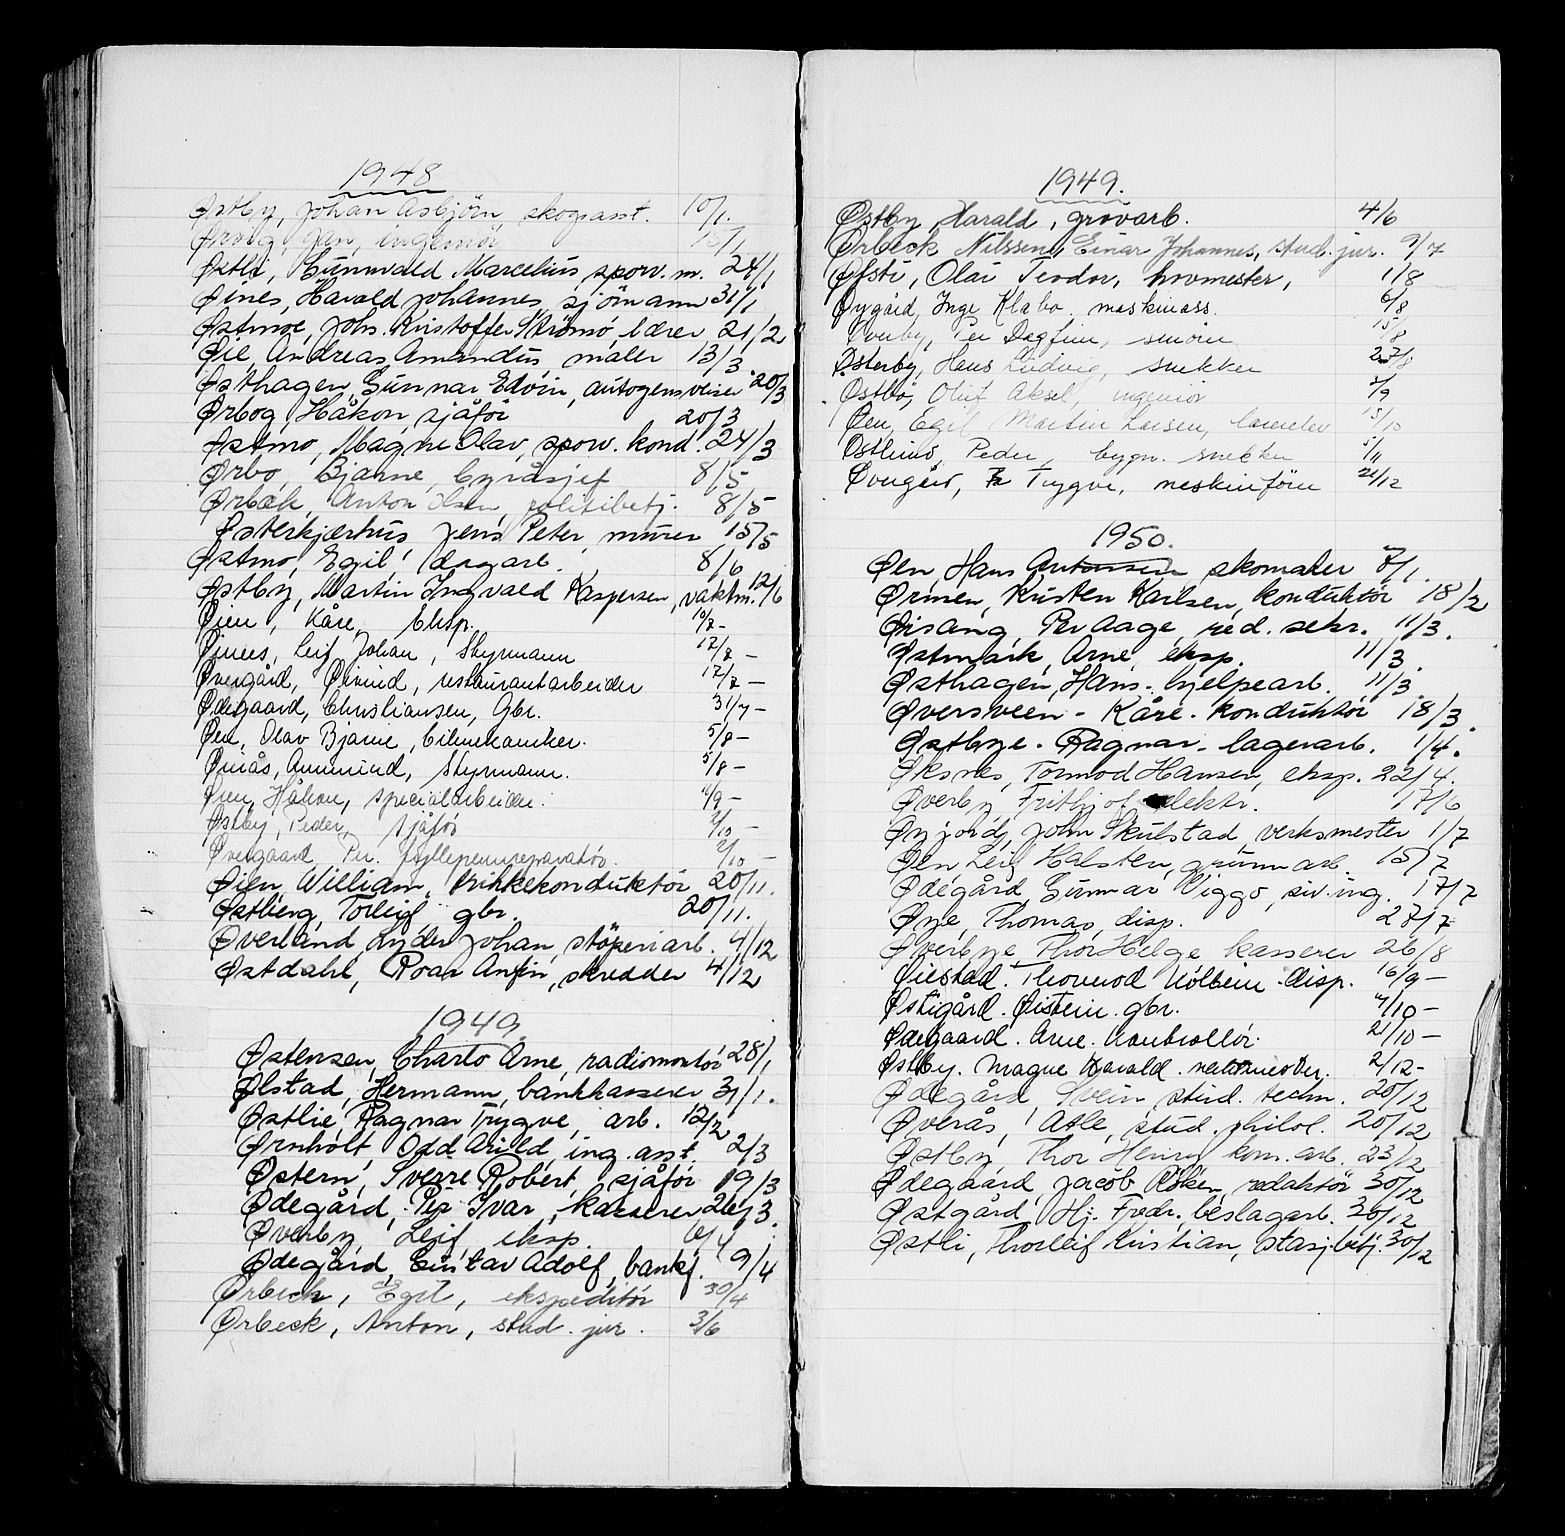 1948
Østby, Johan Asbjörn skogsasst. 10/1.
Ørvig, Jan, ingeniör 10/1
Østli, Gunnvald Marcelius, sporv. m. 24/1
Øines, Harald Johannes, sjömann 31/1
Østmoe, Johs. Kristoffer Strömsö, lærer 21/2
Øie, Andreas Amandus, maler 13/3
Østhagen, Gunnar Edvin, autogensveiser 20/3
Ørbog, Håkon, sjåför 20/3
Østmo, Magne Olav, sporv. kond. 24/3
Ørbo, Bjarne, byråsjef 8/5
Ørbæk, Anton Olsen, politibetj. 8/5
Østerkjærhus Jens Peter, murer 15/5
Østmo, Egil, lagarb. 8/6
Østby, Martin Ingvald Kaspersen, vaktm. 12/6
Øien, Kåre, Eksp. 10/7 -
Øines, Leif Johan, Styrmann 17/7 -
Øvergård, Øivind, restaurantarbeider 17/7 -
Ødegaard, Christiansen, Gbr. 31/7 -
Øen, Olav Bjarne, bilmekaniker. 5/8 -
Ømås, Anmund, styrmann. 5/8 -
Øien, Håkon, specialarbeider. 4/9 -
Østby, Peder, sjåför 2/10 -
Øvergaard, Per. fyllepennreparatör. 2/10 -
Øien, William, trikkekonduktör 20/11.
Østberg, Torleif gbr. 20/11.
Øverland, Lyder Johan, stöperiarb. 4/12
Østdahl, Roar Anfin, skredder 4/12
1949
Østensen, Charlo Arne, radiomontör 28/1
Ølstad, Hermann, bankkasserer 31/1.
Østlie, Ragnar Trygve, arb. 12/2
Ørnholt Odd Arild, ing. asst. 2/3
Østern, Sverre Robert, sjåför 19/3
Ødegård, Per Ivar, kasserer 26/3
Øverby, Leif eksp. 6/4
Ødegård, Gustav Adolf, bankf. 9/4
Ørbeck, Egil, ekspeditör 30/4
Ørbeck, Anton, stud. jur. 3/6
1949.
Østby, Harald, grovarb. 4/6
Ørbeck Nilssen, Einar Johannes, stud. jur. 9/7
Øfsti, Olav Teodor, hovmester, 1/8
Øygård, Inge Klabo. maskinass. 6/8
Øverby, Per Dagfinn, 15/8
Østerby, Hans Ludvig, snekker 27/8
Østbö, Oluf Aksel, ingeniör 2/9
Øen, Egil Martin Larsen, 15/10
Østlimo, Peder, bygn. snekker 5/11
Øvergård, Trygve, maskinförer 21/12
1950.
Øen, Hans Antonsen skomaker 7/1.
Ørmen, Kristen Karlsen, konduktör 18/2
Øisang, Per Aage, red. sekr. 11/3.
Østmark, Arne, eksp. 11/3.
Østhagen, Hans. hjelpearb. 11/3.
Øversveen - Kåre. konduktör 18/3.
Østbye. Ragnar - lagerarb. 1/4.
Øksnes, Tormod Hansen, eksp. 22/4.
Øverby, Frithjof, elektr. 17/6
Øyjordj, John Skulstad, verksmester 1/7
Øen Leif Halsten, grunnarb. 15/7
Ødegård, Gunnar Viggo, siv.ing. 17/7
Øye, Thomas, disp. 27/7
Øverbye, Thor Helge kasserer 26/8
Øiestad. Thorvood Holbein. disp. 16/9 -
Østigård. Øistein. gbr. 7/10 -
Ødegaard. Arne. Kontrollör. 21/10 -
Østby. Magne Harald. 2/12 -
Ødegård, Svein, stud. techn. 20/12
Øverås, Atle, stud. philol. 20/12
Østby, Thor Henry kom. arb. 23/12
Ødegaard, Jacob Röken, redaktör 30/12
Østgård, Hj. Fredr. beslagarb. 30/12
Østli, Thorleif Kristian, stasj.betj. 30/12